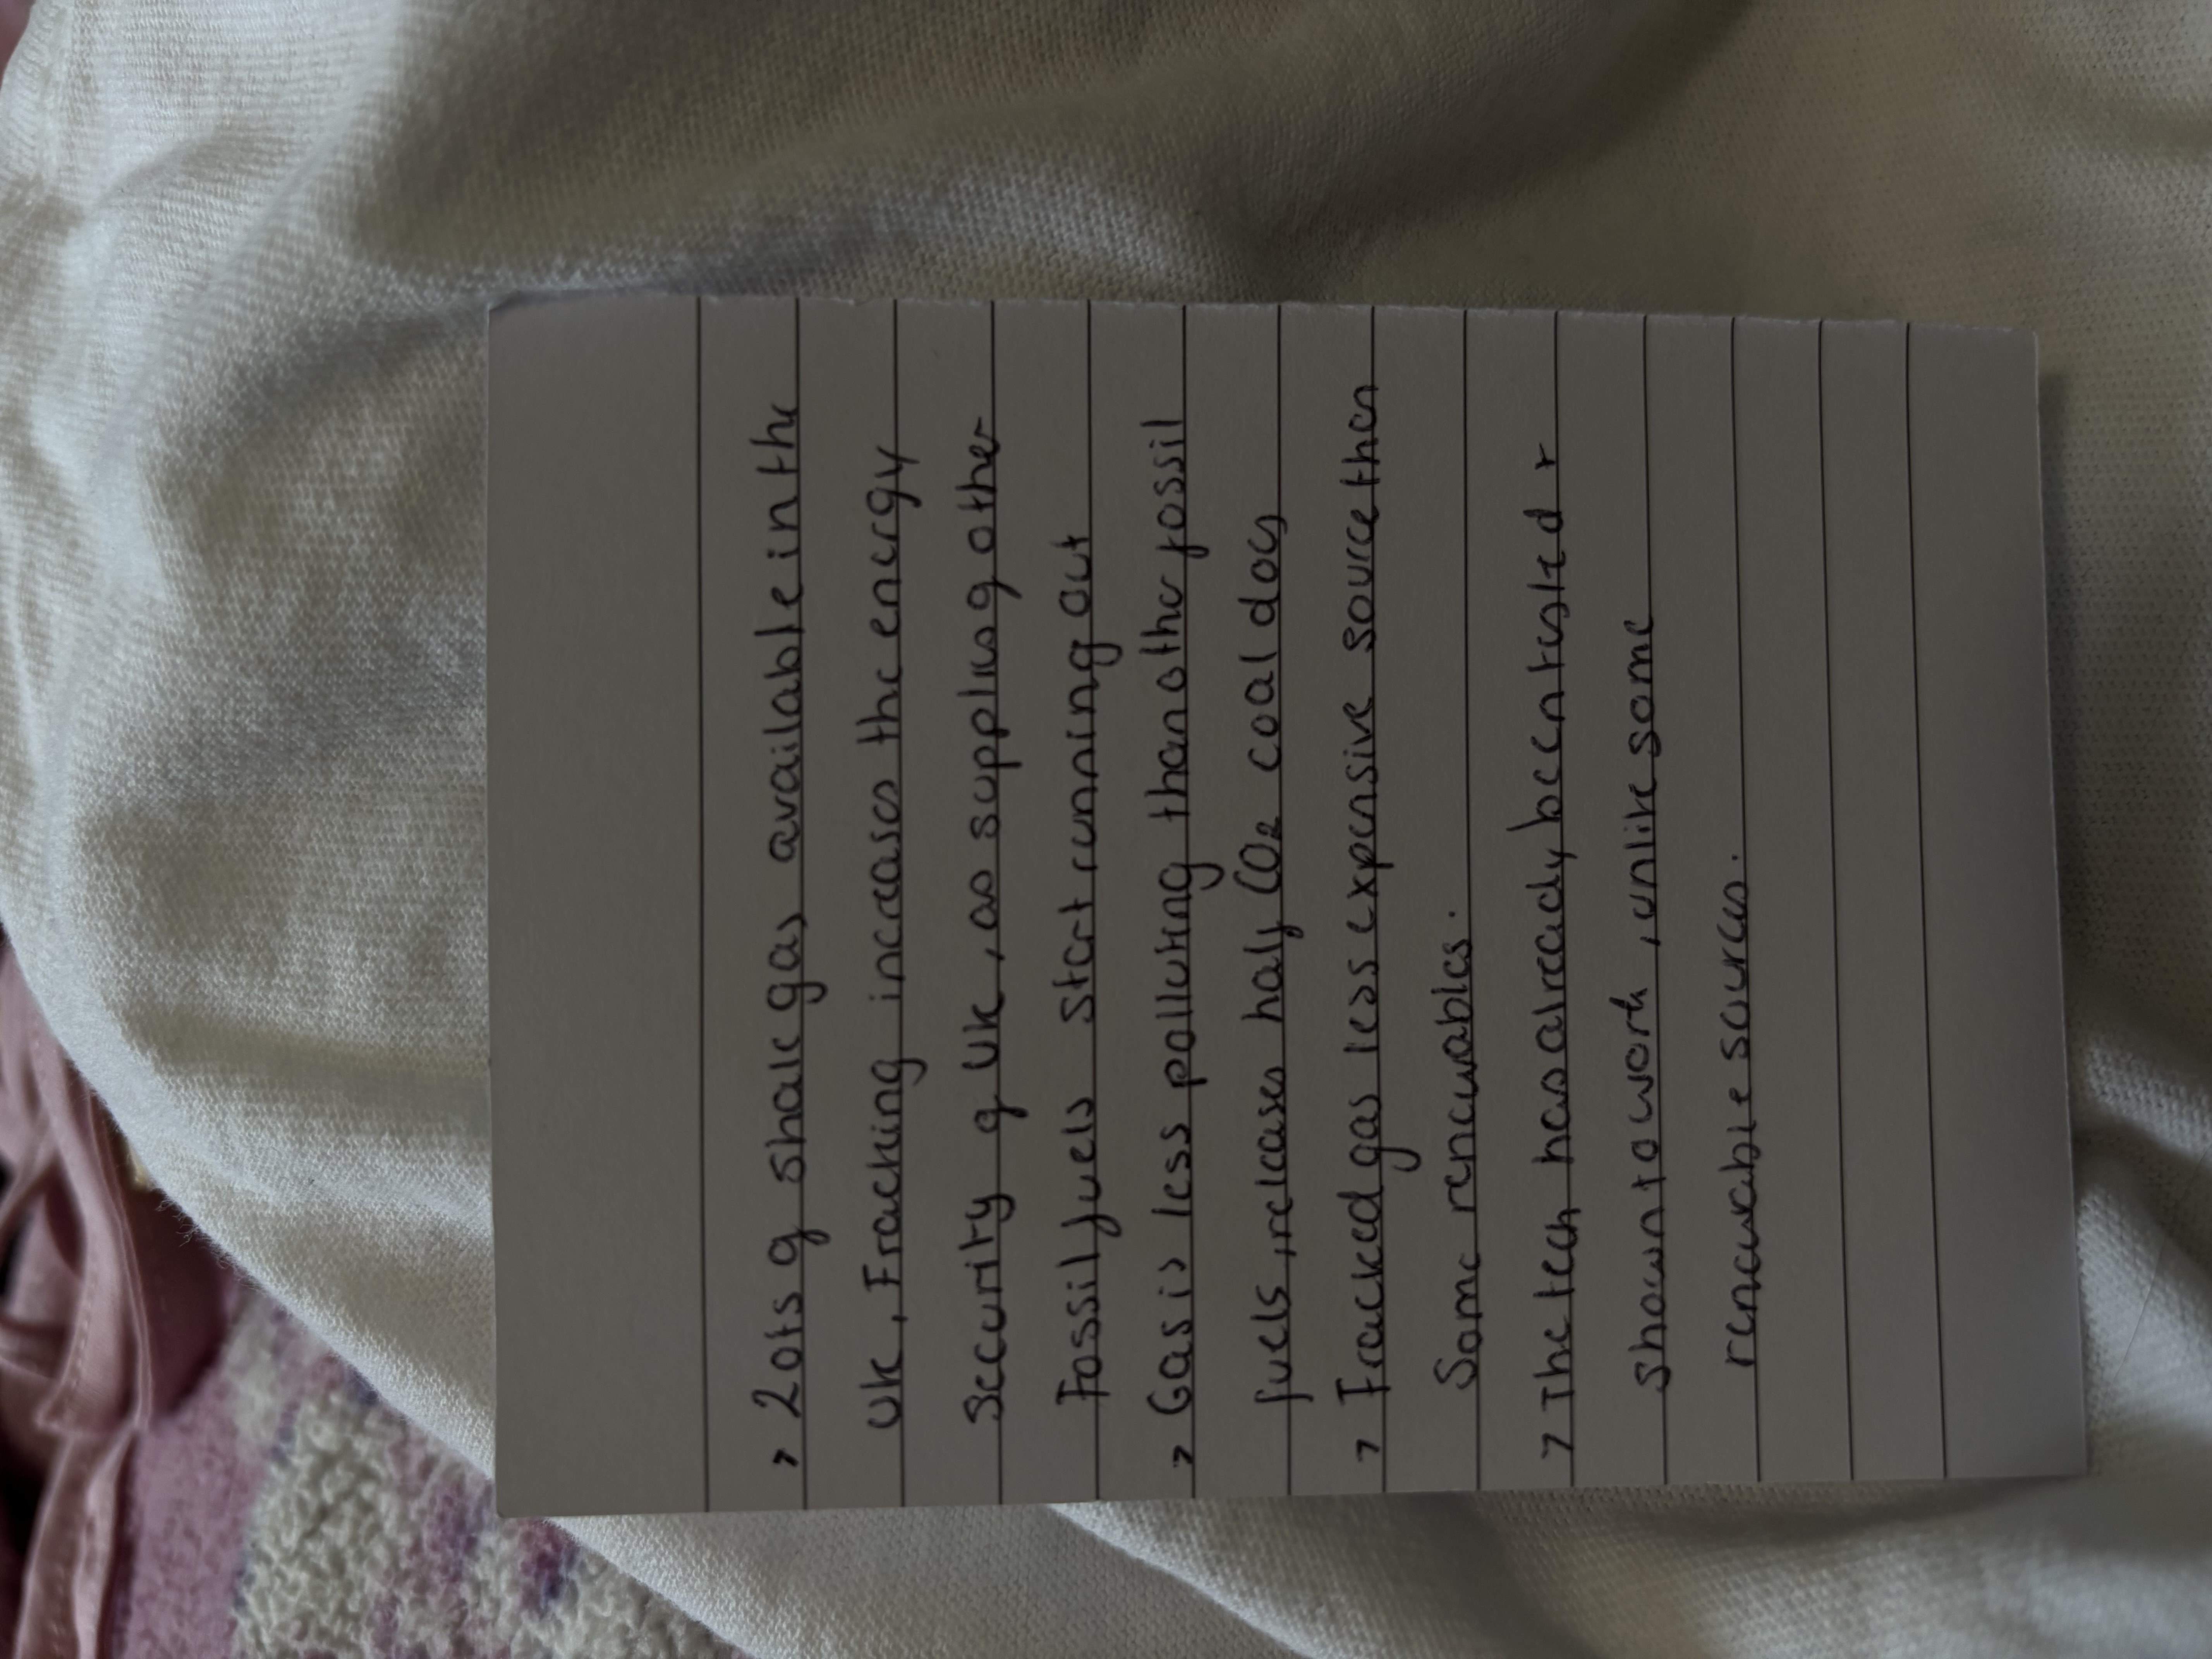 > Lots of shale gas available in the
UK, Fracking increases the energy
security of UK, as supplies of other
Fossil fuels start running out
> Gas is less polluting than other fossil
fuels, releases half CO₂ coal does
> Fracked gas less expensive source than
some renewables.
> The tech has already been tested +
shown to work, unlike some
renewable sources.